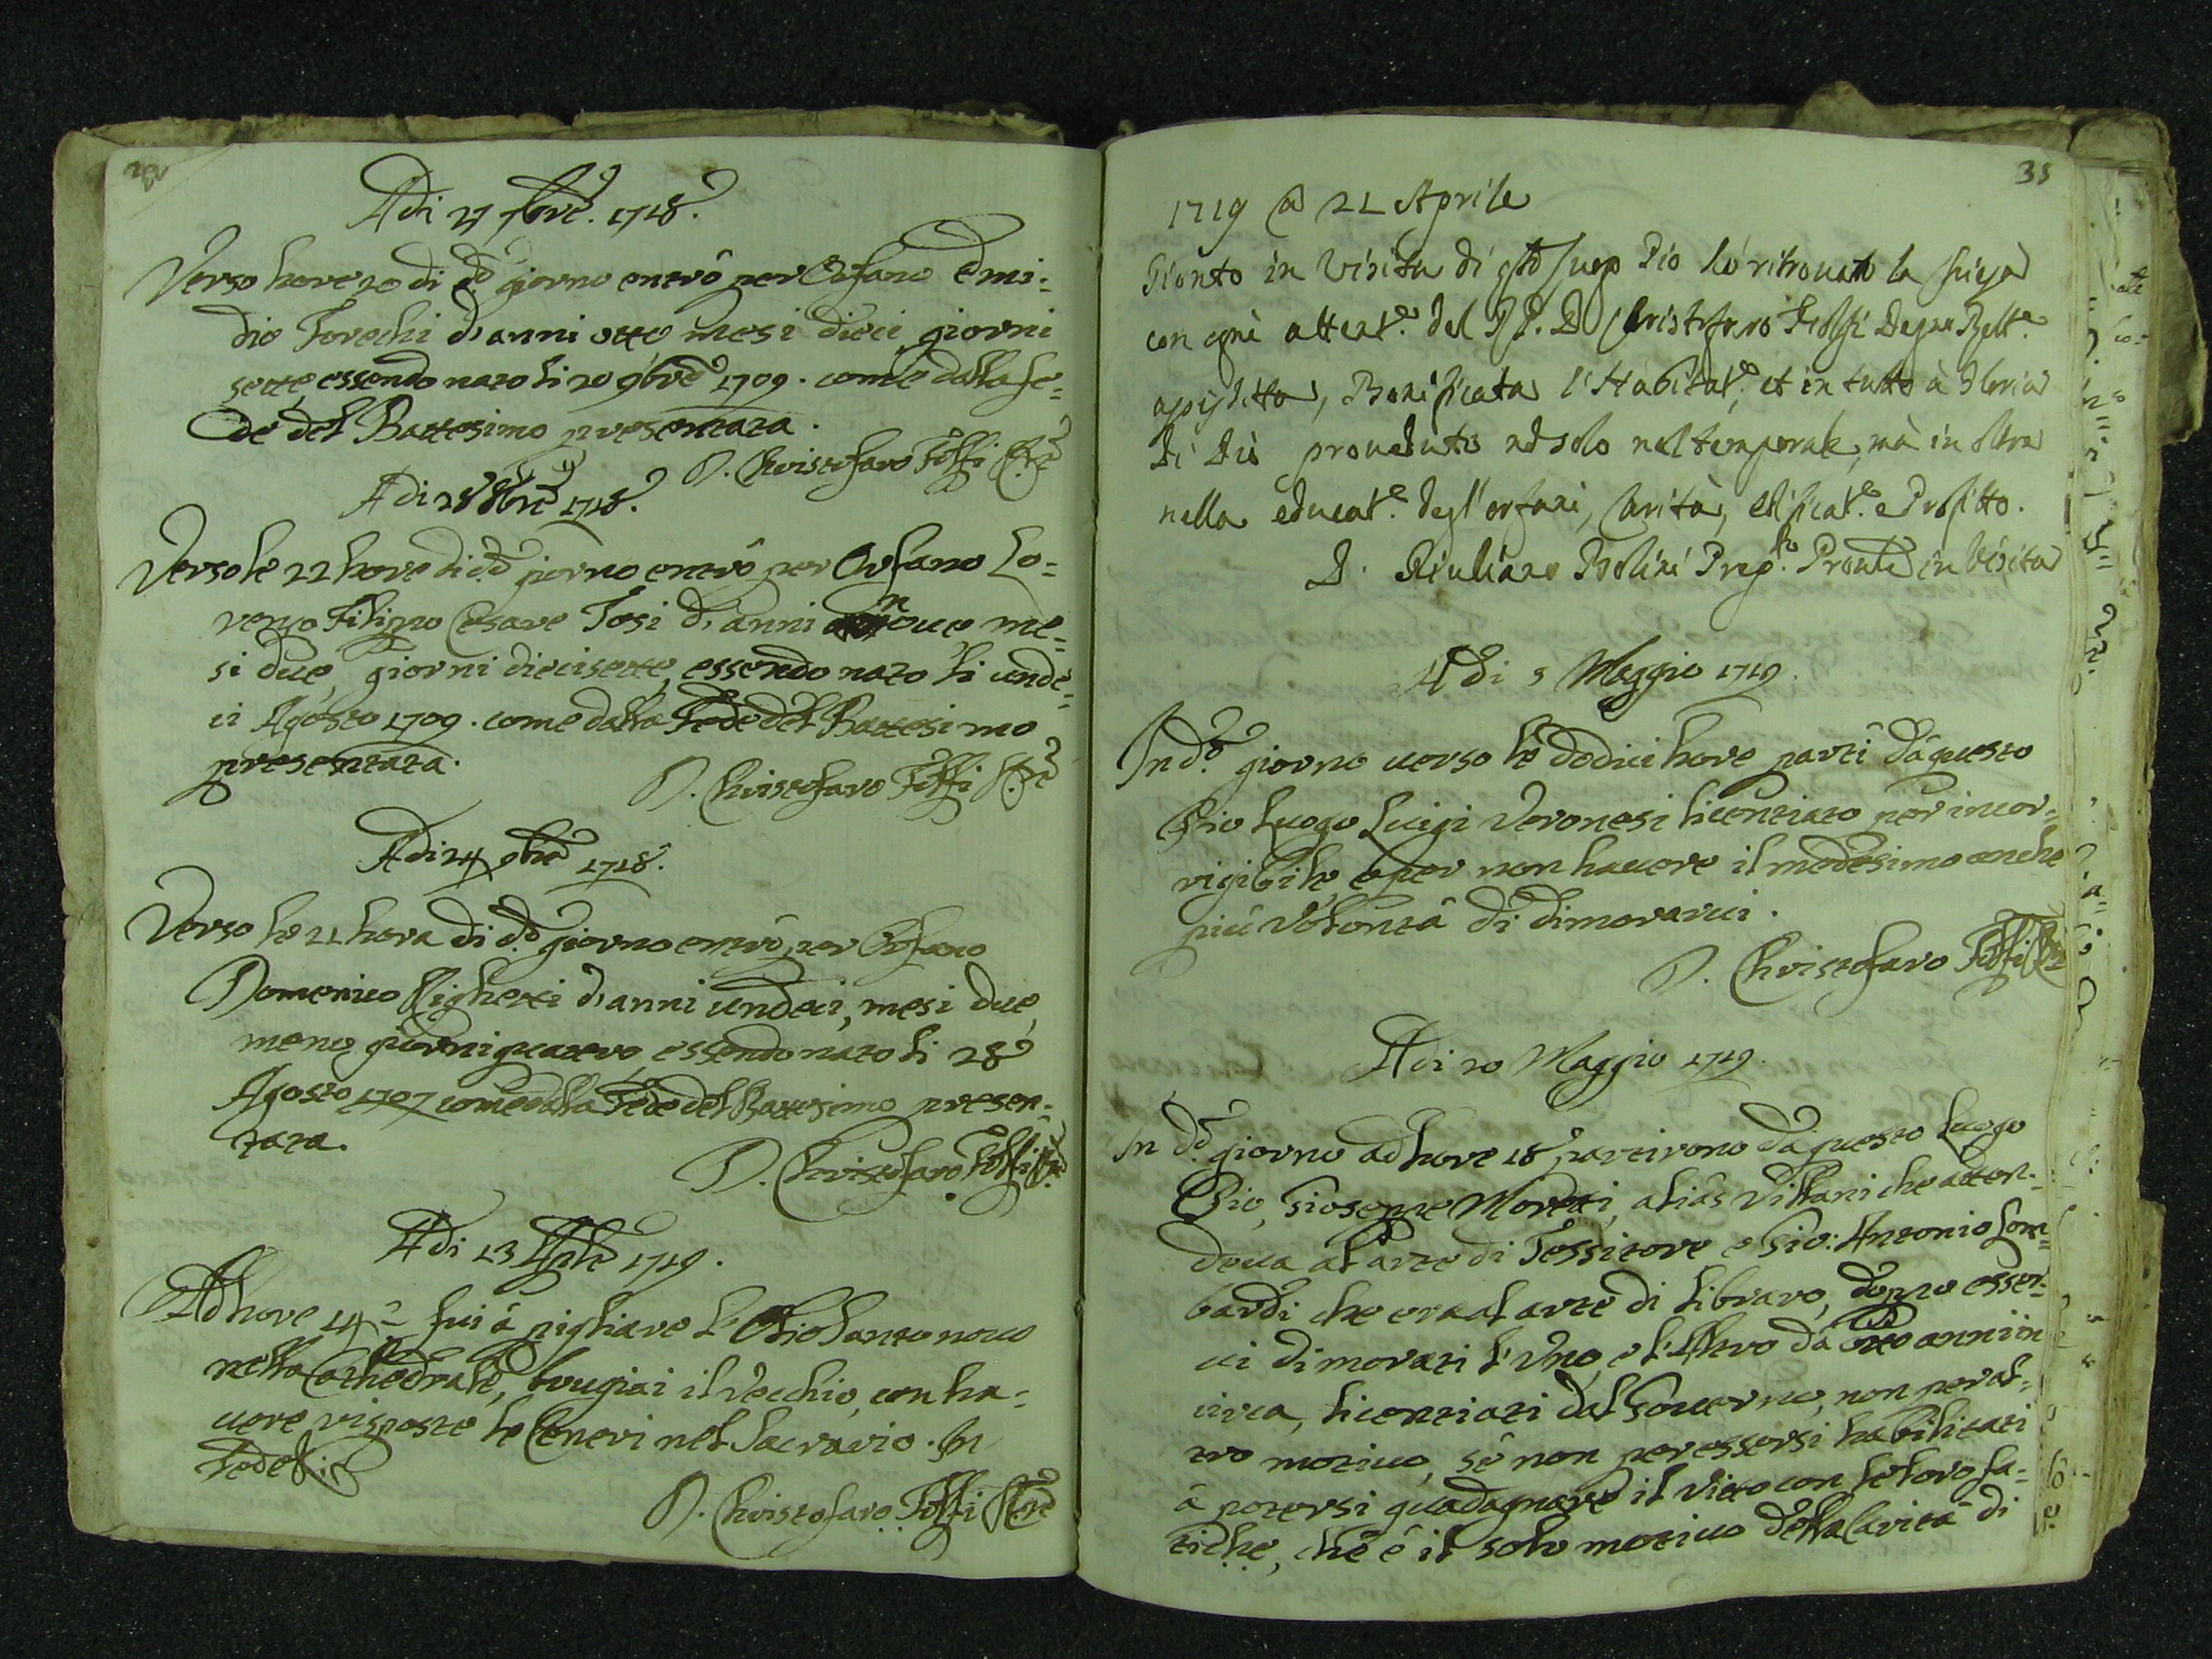 Adi 27 7bre. 1718.
Verso hore 20 di dº giorno entrò per Orfano Emi=
dio Torechi d'anni otto mesi dieci, giorni
sette, essendo nato li 20 9bre 1709. come dalla fe=
de del Battesimo presentata.
D. Christofaro Folfi
Adi 28 8bre 1718.
Verso le 22 hore di dº giorno entrò per Orfano Lo=
renzo Filippo Cesare Tosi d'anni noue me=
si due, giorni diecisette, essendo nato li unde=
ci Agosto 1709. come dalla Fede del Battesimo
presentata.
D. Christofaro Folfi
Adi 24 9bre 1718.
Verso le 21 hora di dº giorno entrò per Orfano
Domenico Righetti d'anni undeci, mesi due,
meno giorni quattro, essendo nato li 28
Agosto 1707 come dalla Fede del Battesimo presen=
tata.
D. Christofaro Folfi
Adi 13 Aple 1719.
Ad hore 14 fui à pigliare l'Olio Santo nouo
nella Cathedrale, brugiai il Vecchio, con ha=
uere risposte le Ceneri nel Sacrario. In
Fede
D. Christofaro Folfi
35
1719 a 21 Aprile
Gionto in Visita di Luogo Pio hò ritrouato la
con ogni attent.e del P. D. Cristoforo Folfi Degno Rett.e
, Bonificata l'Habitat.e, et in tutto à Gloria
di Dio proueduto nò solo nel temporale, mà in oltre
nella educat.e degl'orfani, Carità, edificat.e e Profitto.
D. Giuliano Prep.to Pronle in Visita
Adi 5 Maggio 1719.
In dº giorno uerso le dodici hore partì dà questo
Pio Luogo Luigi Veronesi licentiato per incor=
rigibile, e per non hauere il medesimo anche
più Volontà di dimorarui.
D. Christofaro Folfi
Adi 20 Maggio 1719.
In dº giorno ad hore 18 partirono dà questo Luogo
Pio, Gioseppe Moretti, alias Villani che atten=
deua al arte di Tessitore e Gio: Antonio Lom=
bardi che era al arte di libraro, doppo esser=
ui dimorati l'Uno, e l'Altro dà otto anni in
circa, licentiati dal Gouerno, non per al=
tro motiuo, se non per essersi habilitati
à potersi guadagnare il Vitto con le loro fa=
tiche, che è il solo motiuo della Carità di